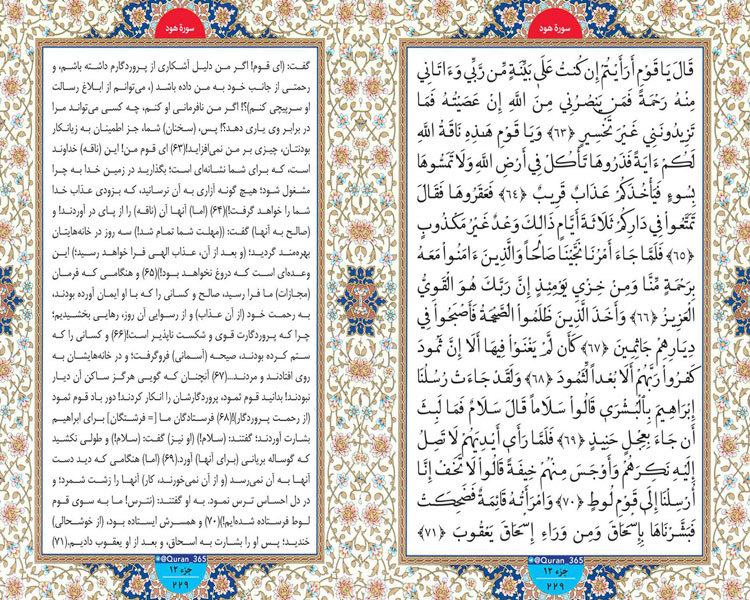 سورهٔ هود
قَالَ يَا قَوْمِ أَرَأَيْتُمْ إِن كُنتُ عَلَىٰ بَيِّنَةٍ مِّن رَّبِّي وَءَاتَانِي
مِنْهُ رَحْمَةً فَمَن يَنصُرُنِي مِنَ اللَّهِ إِنْ عَصَيْتُهُ فَمَا
تَزِيدُونَنِي غَيْرَ تَخْسِيرٍ ﴿٦٣﴾ وَيَا قَوْمِ هَذِهِ نَاقَةُ اللَّهِ
لَكُمْ ءَايَةً فَذَرُوهَا تَأْكُلْ فِي أَرْضِ اللَّهِ وَلَا تَمَسُّوهَا
بِسُوءٍ فَيَأْخُذَكُمْ عَذَابٌ قَرِيبٌ ﴿٦٤﴾ فَعَقَرُوهَا فَقَالَ
تَمَتَّعُوا فِي دَارِكُمْ ثَلَاثَةَ أَيَّامٍ ذَالِكَ وَعْدٌ غَيْرُ مَكْذُوبٍ
﴿٦٥﴾ فَلَمَّا جَاءَ أَمْرُنَا نَجَّيْنَا صَالِحًا وَالَّذِينَ ءَامَنُوا مَعَهُ
بِرَحْمَةٍ مِّنَّا وَمِنْ خِزْيِ يَوْمِئِذٍ إِنَّ رَبَّكَ هُوَ الْقَوِيُّ
الْعَزِيزُ ﴿٦٦﴾ وَأَخَذَ الَّذِينَ ظَلَمُوا الصَّيْحَةُ فَأَصْبَحُوا فِي
دِيَارِهِمْ جَاثِمِينَ ﴿٦٧﴾ كَأَن لَّمْ يَغْنَوْا فِيهَا أَلَا إِنَّ ثَمُودَ
كَفَرُوا رَبَّهُمْ أَلَا بُعْدًا لِّثَمُودَ ﴿٦٨﴾ وَلَقَدْ جَاءَتْ رُسُلُنَا
إِبْرَاهِيمَ بِالْبُشْرَىٰ قَالُوا سَلَامًا قَالَ سَلَامٌ فَمَا لَبِثَ
أَن جَاءَ بِعِجْلٍ حَنِيذٍ ﴿٦٩﴾ فَلَمَّا رَأَىٰ أَيْدِيَهُمْ لَا تَصِلُ
إِلَيْهِ نَكِرَهُمْ وَأَوْجَسَ مِنْهُمْ خِيفَةً قَالُوا لَا تَخَفْ إِنَّا
أُرْسِلْنَا إِلَىٰ قَوْمِ لُوطٍ ﴿٧٠﴾ وَامْرَأَتُهُ قَائِمَةٌ فَضَحِكَتْ
فَبَشَّرْنَاهَا بِإِسْحَاقَ وَمِن وَرَاءِ إِسْحَاقَ يَعْقُوبَ ﴿٧١﴾
@Quran_365
جزء ۱۲
۲۲۹
سورهٔ هود
گفت: (ای قوم! اگر من دلیل آشکاری از پروردگارم داشته باشم، و
رحمتی از جانب خود به من داده باشد (، می‌توانم از ابلاغ رسالت
او سرپیچی کنم)؟! اگر من نافرمانی او کنم، چه کسی می‌تواند مرا
در برابر وی یاری دهد؟! پس، (سخنان) شما، جز اطمینان به زیانکار
بودنتان، چیزی بر من نمی‌افزاید!(۶۳) ای قوم من! این (ناقه) خداوند
است، که برای شما نشانه‌ای است؛ بگذارید در زمین خدا به چرا
مشغول شود؛ هیچ گونه آزاری به آن نرسانید، که بزودی عذاب خدا
شما را خواهد گرفت!(۶۴) (اما) آنها آن (ناقه) را از پای در آوردند! و
(صالح به آنها) گفت: ((مهلت شما تمام شد!) سه روز در خانه‌هایتان
بهره‌مند گردید؛ (و بعد از آن، عذاب الهی فرا خواهد رسید؛) این
وعده‌ای است که دروغ نخواهد بود!)(۶۵) و هنگامی که فرمان
(مجازات) ما فرا رسید، صالح و کسانی را که با او ایمان آورده بودند،
به رحمت خود (از آن عذاب) و از رسوایی آن روز، رهایی بخشیدیم؛
چرا که پروردگارت قوی و شکست ناپذیر است!(۶۶) و کسانی را که
ستم کرده بودند، صیحه (آسمانی) فروگرفت؛ و در خانه‌هایشان به
روی افتادند و مردند..(۶۷) آنچنان که گویی هرگز ساکن آن دیار
نبودند! بدانید قوم ثمود، پروردگارشان را انکار کردند! دور باد قوم ثمود
(از رحمت پروردگار)!(۶۸) فرستادگان ما [= فرشتگان] برای ابراهیم
بشارت آوردند؛ گفتند: (سلام!) (او نیز) گفت: (سلام!) و طولی نکشید
که گوساله بریانی (برای آنها) آورد.(۶۹) (اما) هنگامی که دید دست
آنها به آن نمی‌رسد (و از آن نمی‌خورند، کار) آنها را زشت شمرد؛ و
در دل احساس ترس نمود. به او گفتند: (نترس! ما به سوی قوم
لوط فرستاده شده‌ایم!)(۷۰) و همسرش ایستاده بود، (از خوشحالی)
خندید؛ پس او را بشارت به اسحاق، و بعد از او یعقوب دادیم.(۷۱)
@Quran_365
جزء ۱۲
۲۲۹